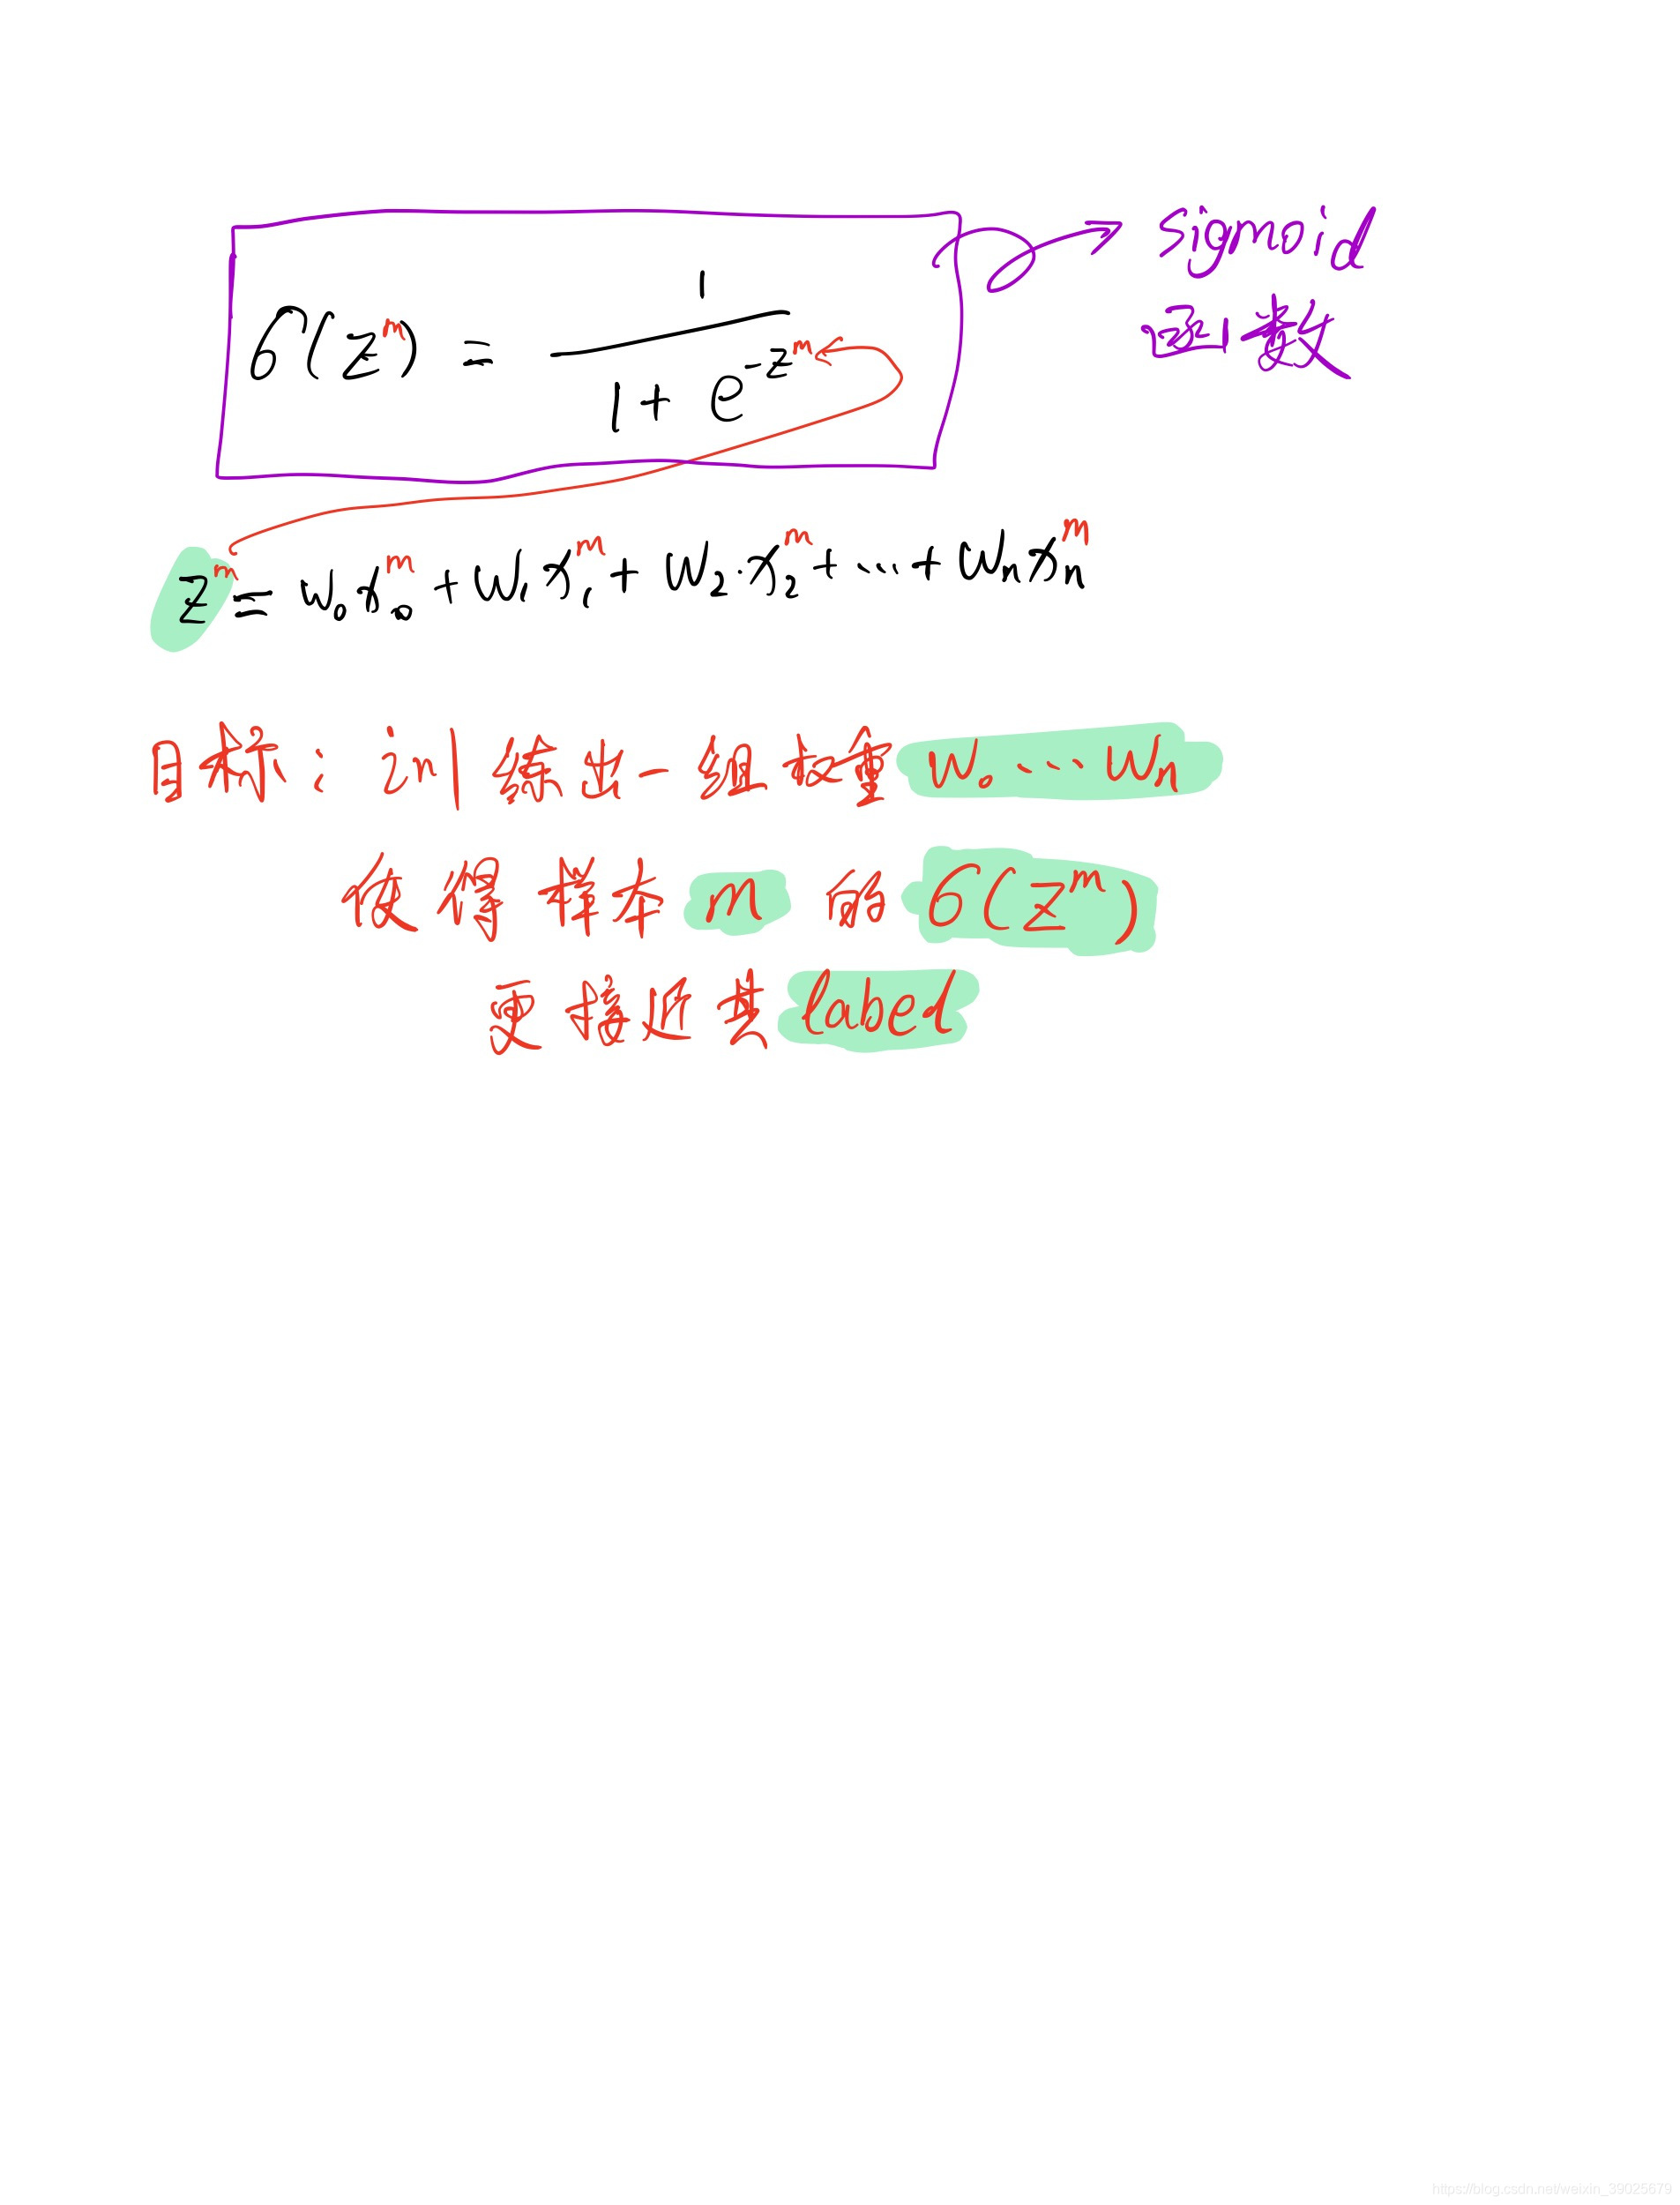 σ(z^m) = 1 / (1 + e^{-z^m})
sigmoid
函数
z^m = w_0 x_0^m + w_1 x_1^m + w_2 · x_2^m + ... + w_n x_n^m
目标: 训练出一组权重 w_0 ... w_n
使得样本 m 的 σ(z^m)
更接近其 label
https://blog.csdn.net/weixin_39025679